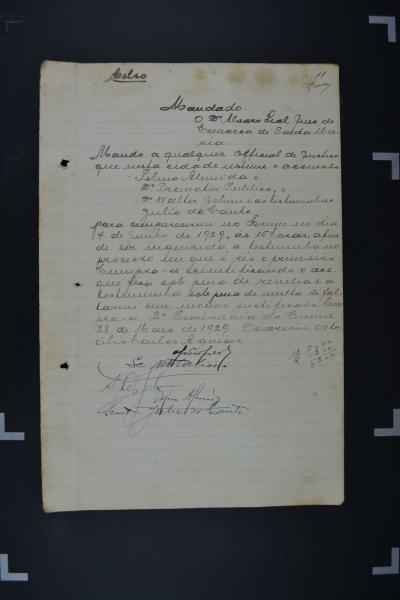 Celso
11
Mandado.
O Dr Alvaro Leal, Juiz de
Comarca de Santa Ma-
ria.
Mando a qualquer Official de Justiça
que nesta cidade intime o accusado
Telmo Almeida e
Dr Promotor Publico, e
Dr Walter Jobim e as testemunhas
Julio do Canto,
para comparecerem no Forum no dia
4 de Junho de 1929, ás 16 horas, afim
de ser inquirida a testemunha no
processo em que é réo o primeiro.
Cumpra-se scientificando o ac
que sob pena de revelia e a
testemunha sob pena de multa si fal-
tarem sem motivo justificado. Cum
pra-se. 2º Escrivania do Crime
28 de Maio de 1929. Escrevi
Carlos Aguiar
Julio do Canto